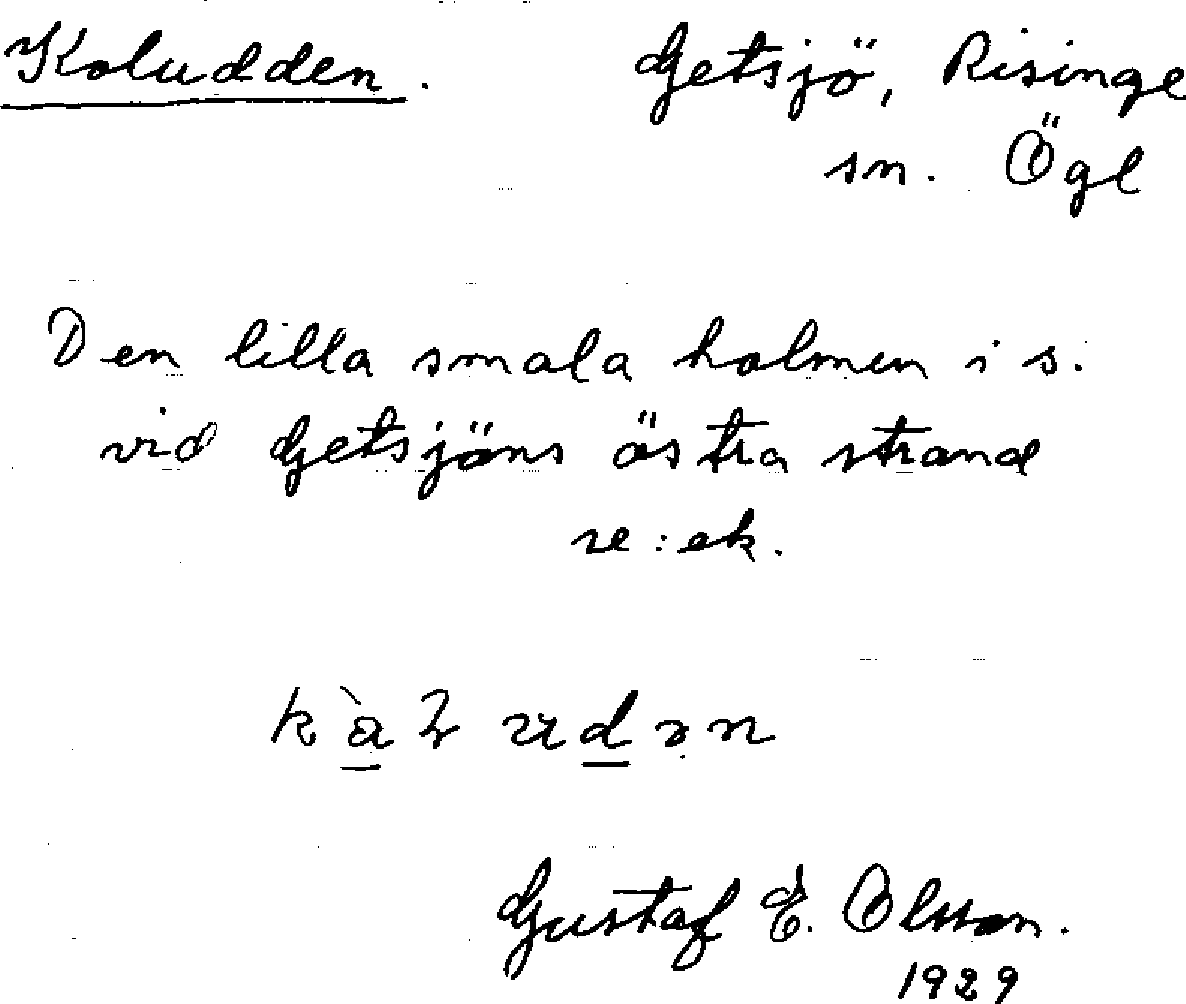 Koludden. Getsjö, Risinge
sn. Ögl
Den lilla smala holmen i s.
vid Getsjöns östra strand
se: ek.
Gustaf E. Olsson.
1929